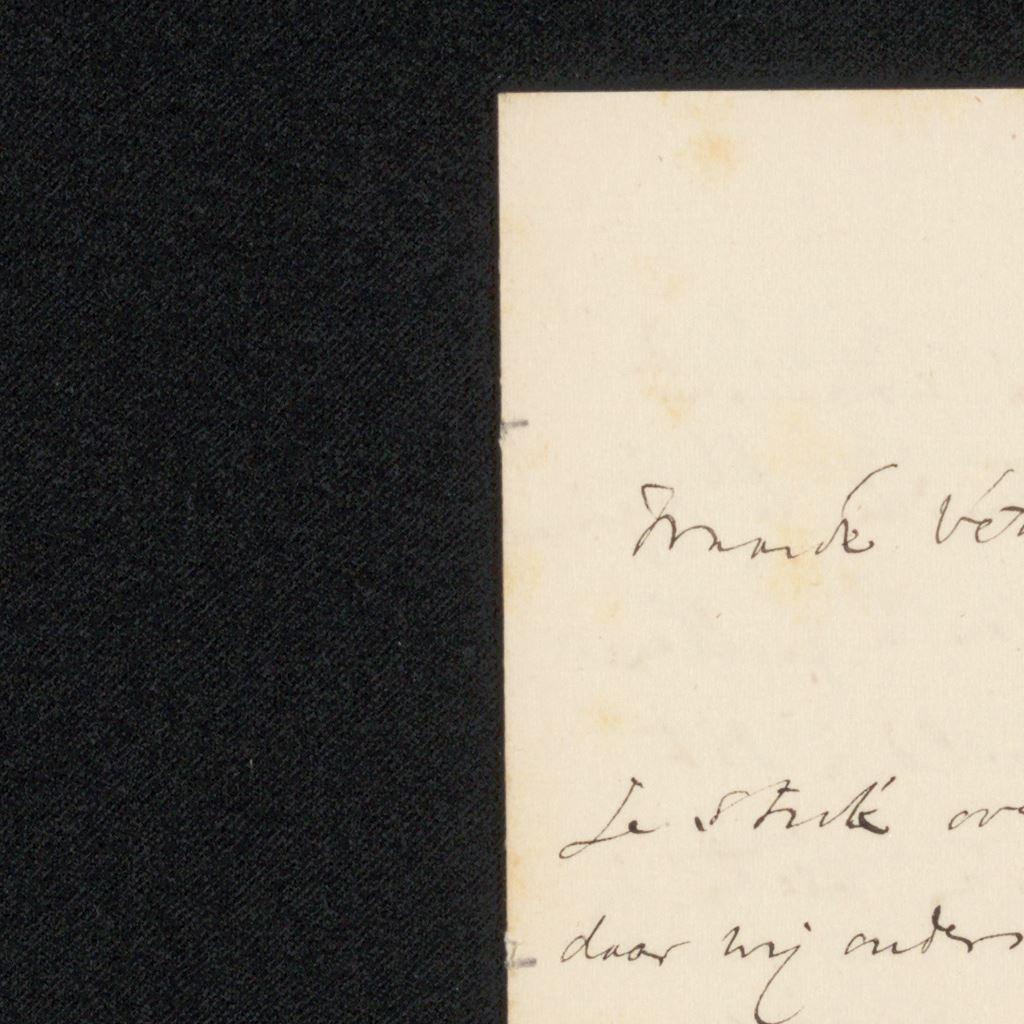 Waarde Vet
Je stuk ov
daar wij anders